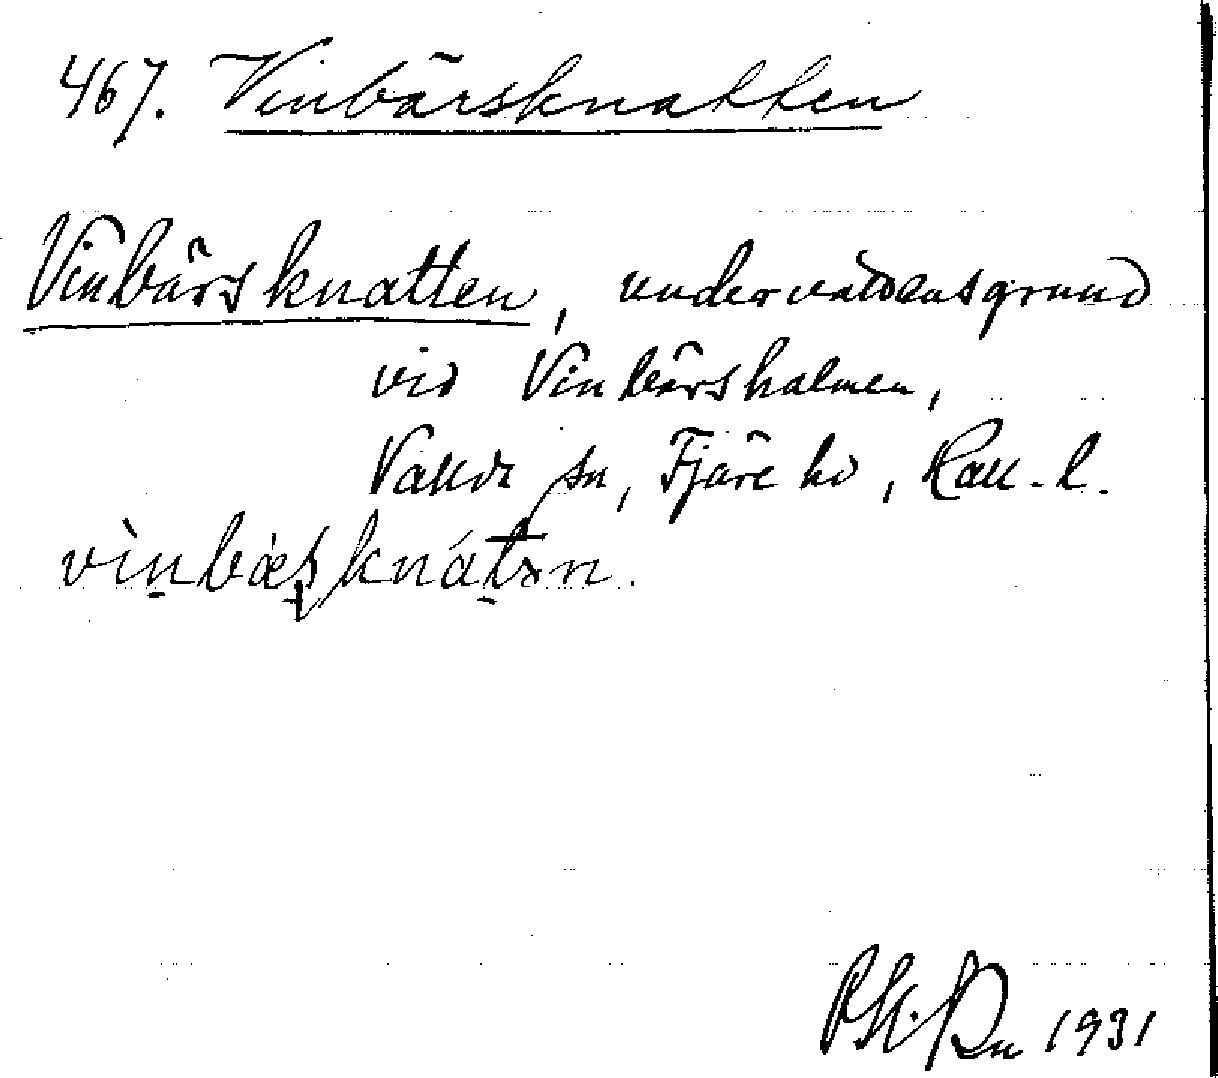 467. Vinbärsknatten
Vinbärsknatten, undervattensgrund
vid Vinbärsholmen,
Valda sn, Fjäre hd, Hall. l.
1931